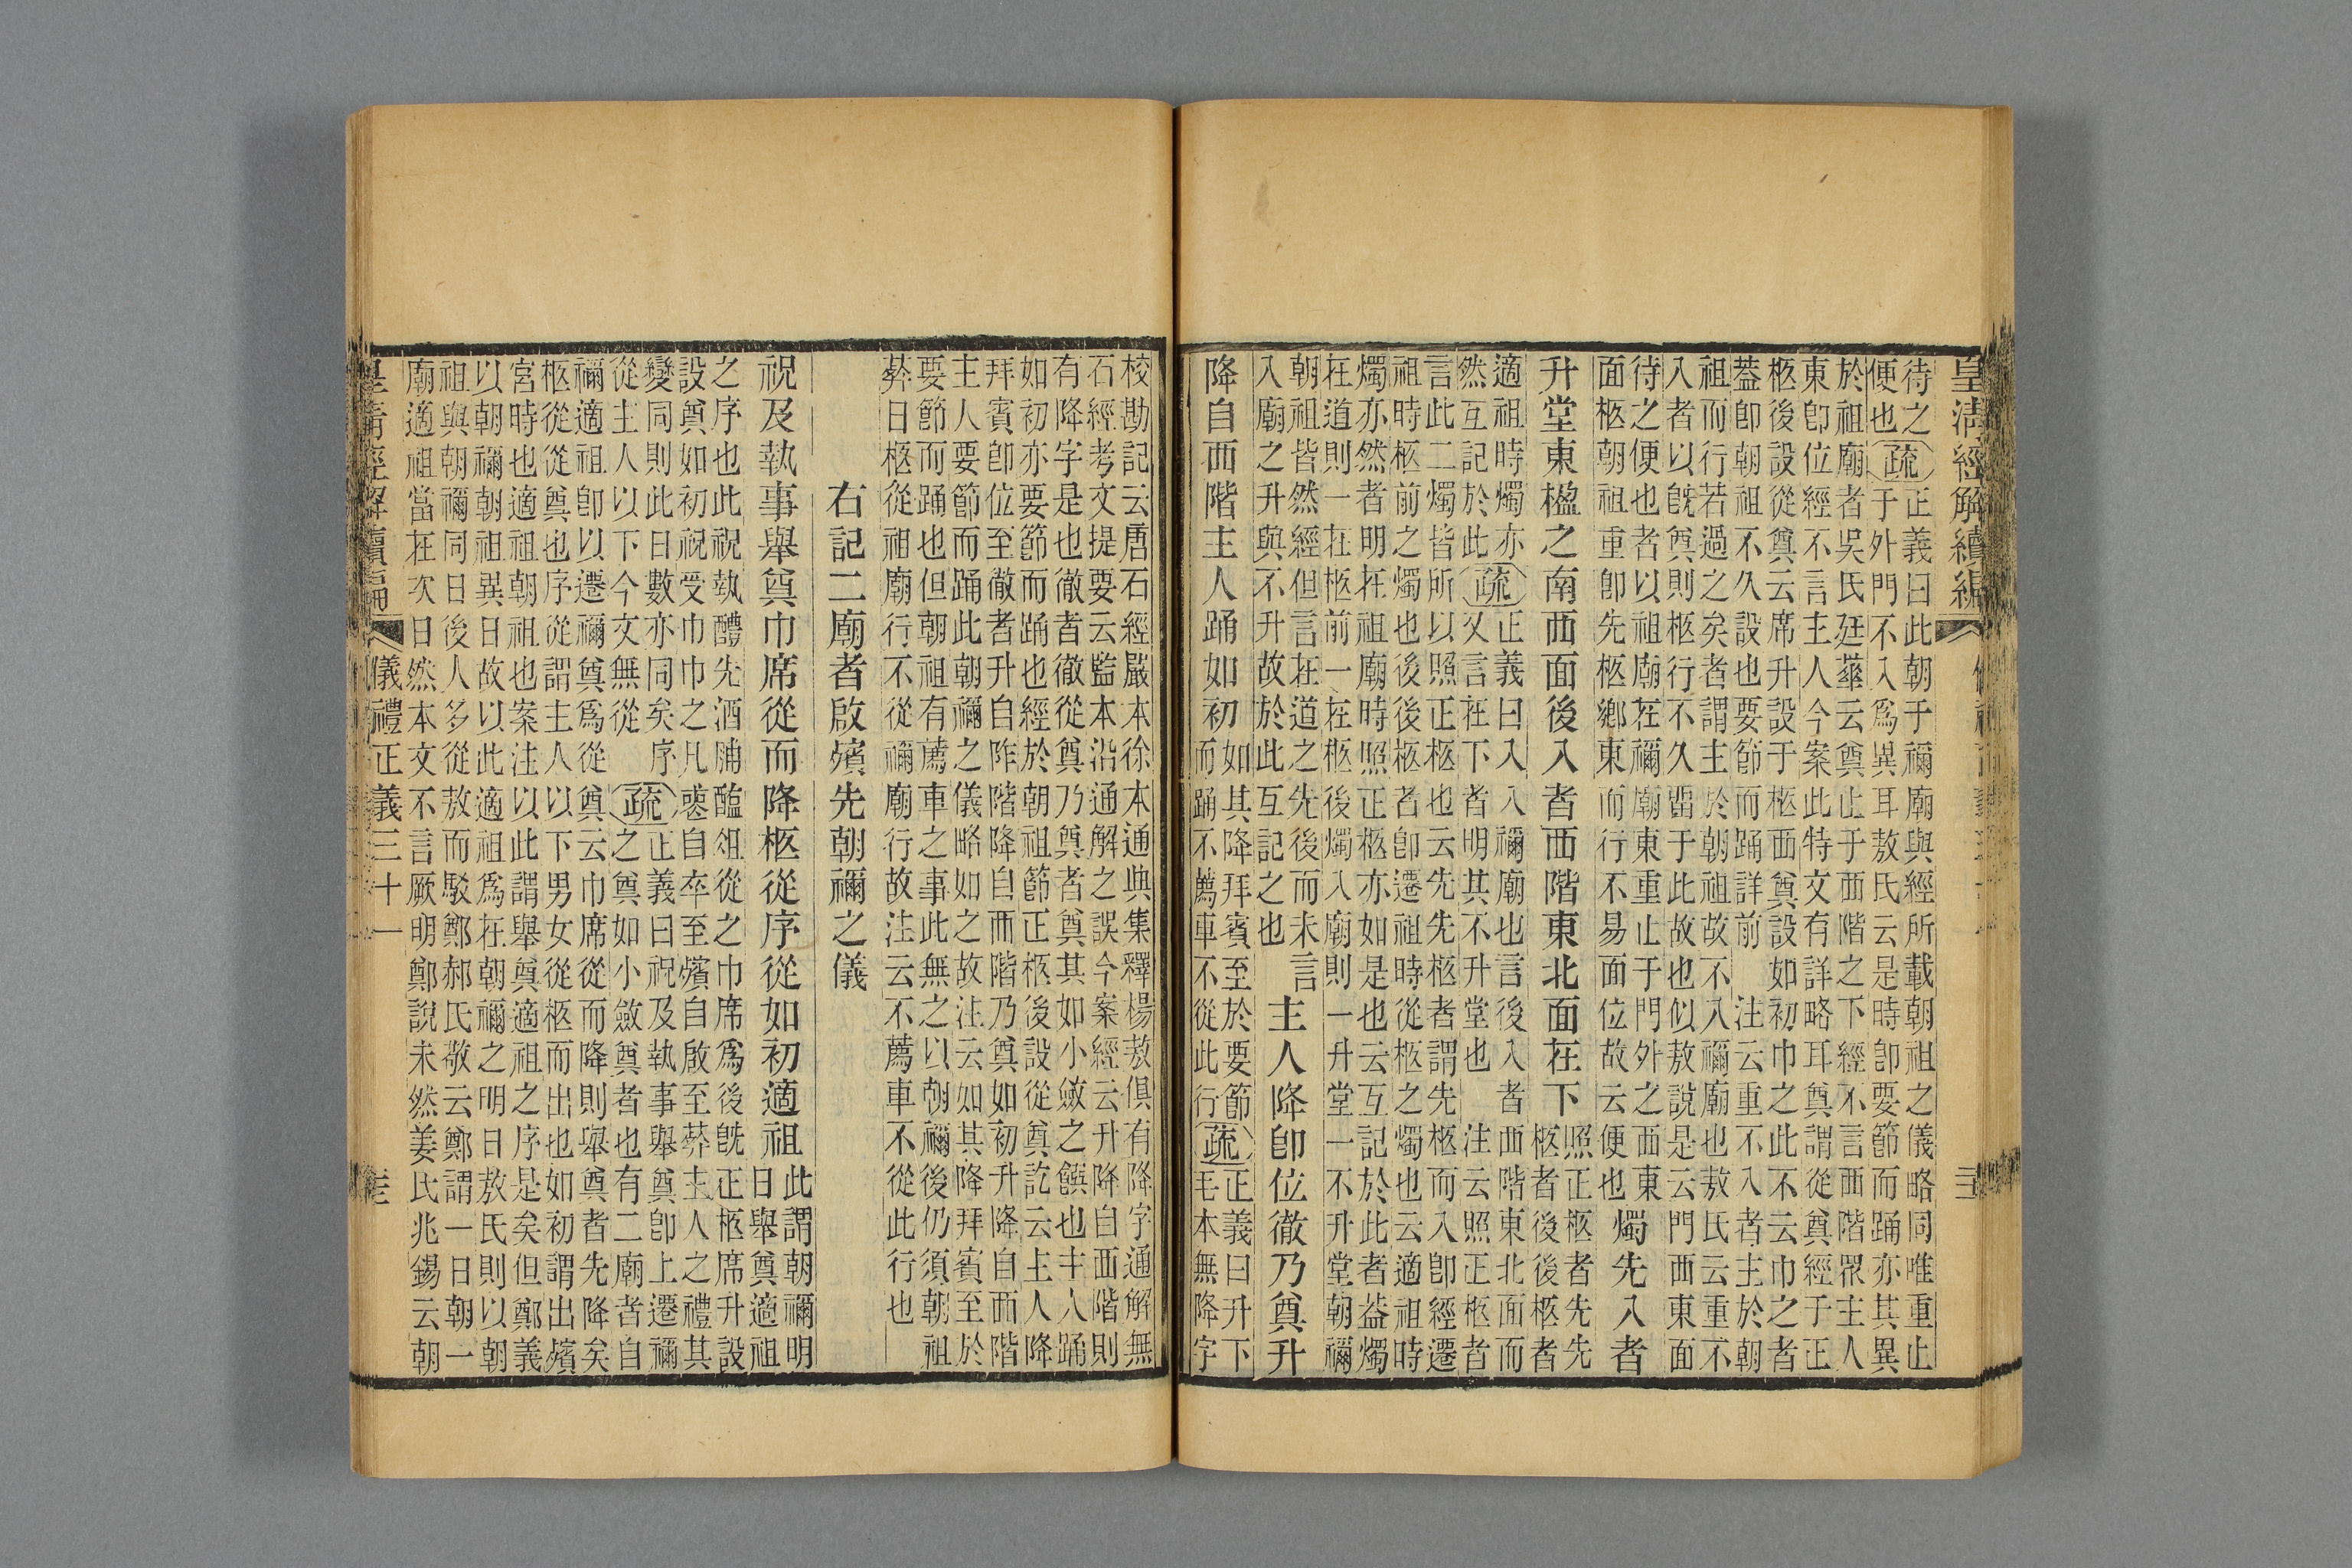 皇清經解續編
待之正義曰此朝于禰廟與經所載朝祖之儀略同唯重止
便也疏于外門不入爲異耳敖氏云是時卽要節而踊亦其異
於祖廟者吳氏廷華云奠止于西階之下經不言西階眾主人
東卽位經不言主人今案此特文有詳略耳奠謂從奠經于正
柩後設從奠云席升設于柩西奠設如初巾之此不云巾之者
葢卽朝祖不久設也要節而踊詳前 注云重不入者主於朝
祖而行若過之矣者謂主於朝祖故不入禰廟也敖氏云重不
入者以旣奠則柩行不久畱于此故也似敖說是云門西東面
待之便也者以祖廟在禰廟東重止于門外之西東
面柩朝祖重卽先柩鄉東而行不易面位故云便也
燭先入者
升堂東楹之南西面後入者西階東北面在下
照正柩者先先
柩者後後柩者
適祖時燭亦
然互記於此
疏
正義曰入禰廟也言後入者西階東北面而
又言在下者明其不升堂也 注云照正柩者
言此二燭皆所以照正柩也云先先柩者謂先柩而入卽經遷
祖時柩前之燭也後後柩者卽遷祖時從柩之燭也云適祖時
燭亦然者明在祖廟時照正柩亦如是也云互記於此者葢燭
在道則一在柩前一在柩後燭入廟則一升堂一不升堂朝禰
朝祖皆然經但言在道之先後而未言
入廟之升與不升故於此互記之也
主人降卽位徹乃奠升
降自西階主人踊如初
如其降拜賓至於要節
而踊不薦車不從此行
疏
正義曰升下
毛本無降字
校勘記云唐石經嚴本徐本通典集釋楊敖俱有降字通解無
石經考文提要云監本沿通解之誤今案經云升降自西階則
有降字是也徹者徹從奠乃奠者奠其如小斂之饌也主人踊
如初亦要節而踊也經於朝祖節正柩後設從奠訖云主人降
拜賓卽位至徹者升自阼階降自西階乃奠如初升降自西階
主人要節而踊此朝禰之儀略如之故注云如其降拜賓至於
要節而踊也但朝祖有薦車之事此無之以朝禰後仍須朝祖
葬日柩從祖廟行不從禰廟行故注云不薦車不從此行也
右記二廟者啟殯先朝禰之儀
祝及執事舉奠巾席從而降柩從序從如初適祖
此謂朝禰明
日舉奠適祖
之序也此祝執醴先酒脯醢俎從之巾席爲後旣正柩席升設
設奠如初祝受巾巾之凡䘮自卒至殯自啟至葬主人之禮其
變同則此日數亦同矣序
從主人以下今文無從
疏
正義曰祝及執事舉奠卽上遷禰
之奠如小斂奠者也有二廟者自
禰適祖卽以遷禰奠爲從奠云巾席從而降則舉奠者先降矣
柩從從奠也序從謂主人以下男女從柩而出也如初謂出殯
宮時也適祖朝祖也案注以此謂舉奠適祖之序是矣但鄭義
以朝禰朝祖異日故以此適祖爲在朝禰之明日敖氏則以朝
祖與朝禰同日後人多從敖而駁鄭郝氏敬云鄭謂一日朝一
廟適祖當在次日然本文不言厥明鄭說未然姜氏兆錫云朝
皇清經解續編 儀禮正義三十一